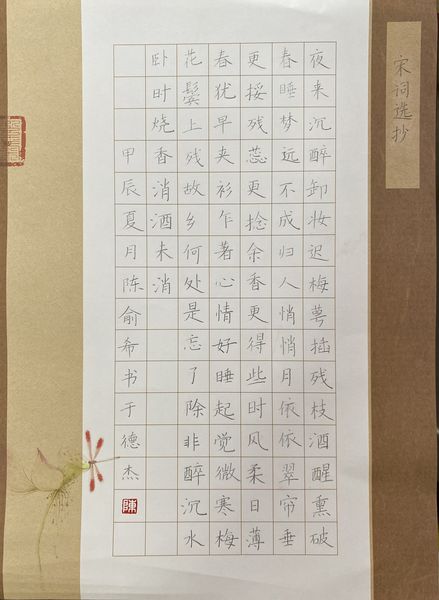 宋词选抄
夜来沉醉卸妆迟梅萼插残枝酒醒熏破
春睡梦远不成归人悄悄月依依翠帘垂
更挼残蕊更捻余香更得些时风柔日薄
春犹早夹衫乍著心情好睡起觉微寒梅
花鬓上残故乡何处是忘了除非醉沉水
卧时烧香消酒未消
甲辰夏月陈俞希书于德杰
陳